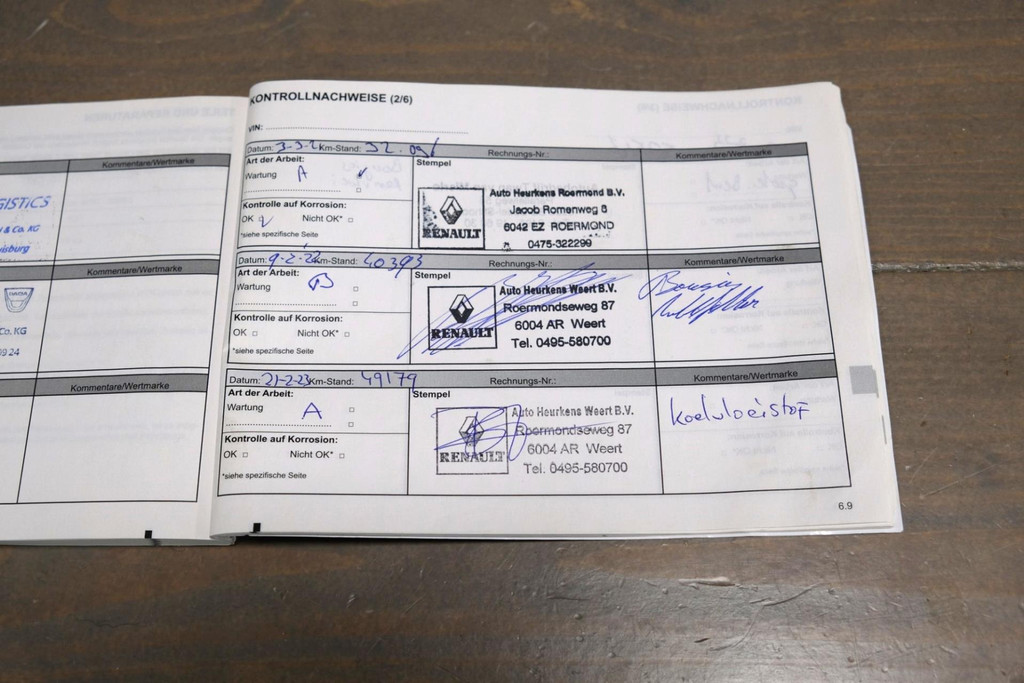 GISTICS
& Co. KG
isburg
Kommentare/Wertmarke
Kommentare/Wertmarke
DACIA
Co. KG
09 24
Kommentare/Wertmarke
KONTROLLNACHWEISE (2/6)
VIN:
Datum: Km-Stand: Rechnungs-Nr.: Kommentare/Wertmarke
Art der Arbeit: Stempel
Wartung A
Kontrolle auf Korrosion:
OK Nicht OK*
*siehe spezifische Seite
RENAULT
Auto Heurkens Roermond B.V.
Jacob Romenweg 8
6042 EZ ROERMOND
0475-322299
Datum: 9-2-22 Km-Stand: 40393 Rechnungs-Nr.: Kommentare/Wertmarke
Art der Arbeit: Stempel
Wartung B
Kontrolle auf Korrosion:
OK Nicht OK*
*siehe spezifische Seite
RENAULT
Auto Heurkens Weert B.V.
Roermondseweg 87
6004 AR Weert
Tel. 0495-580700
Datum: 21-2-23 Km-Stand: 49179 Rechnungs-Nr.: Kommentare/Wertmarke
Art der Arbeit: Stempel
Wartung A
Kontrolle auf Korrosion:
OK Nicht OK*
*siehe spezifische Seite
RENAULT
Auto Heurkens Weert B.V.
Roermondseweg 87
6004 AR Weert
Tel. 0495-580700
koelvloeistof
6.9